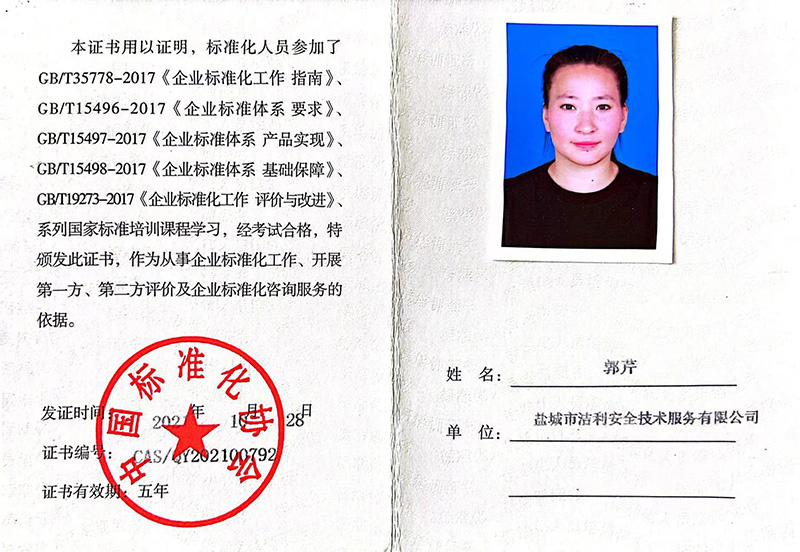 本证书用以证明，标准化人员参加了
GB/T35778-2017《企业标准化工作 指南》、
GB/T15496-2017《企业标准体系 要求》、
GB/T15497-2017《企业标准体系 产品实现》、
GB/T15498-2017《企业标准体系 基础保障》、
GB/T19273-2017《企业标准化工作 评价与改进》、
系列国家标准培训课程学习，经考试合格，特
颁发此证书，作为从事企业标准化工作、开展
第一方、第二方评价及企业标准化咨询服务的
依据。
中国标准化协会
发证时间：2021年10月28日
证书编号：CAS/QY202100792
证书有效期：五年
姓 名：郭芹
单 位：盐城市洁利安全技术服务有限公司